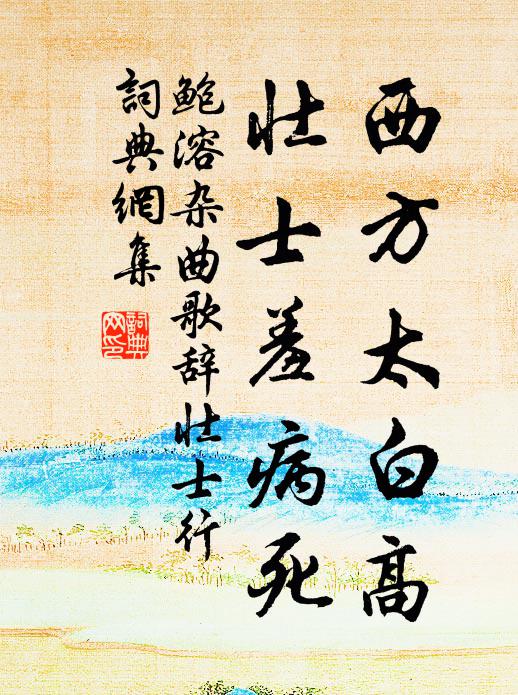 西方太白高
壮士羞病死
鲍溶杂曲歌辞壮士行
詞典網集
詞典
网印